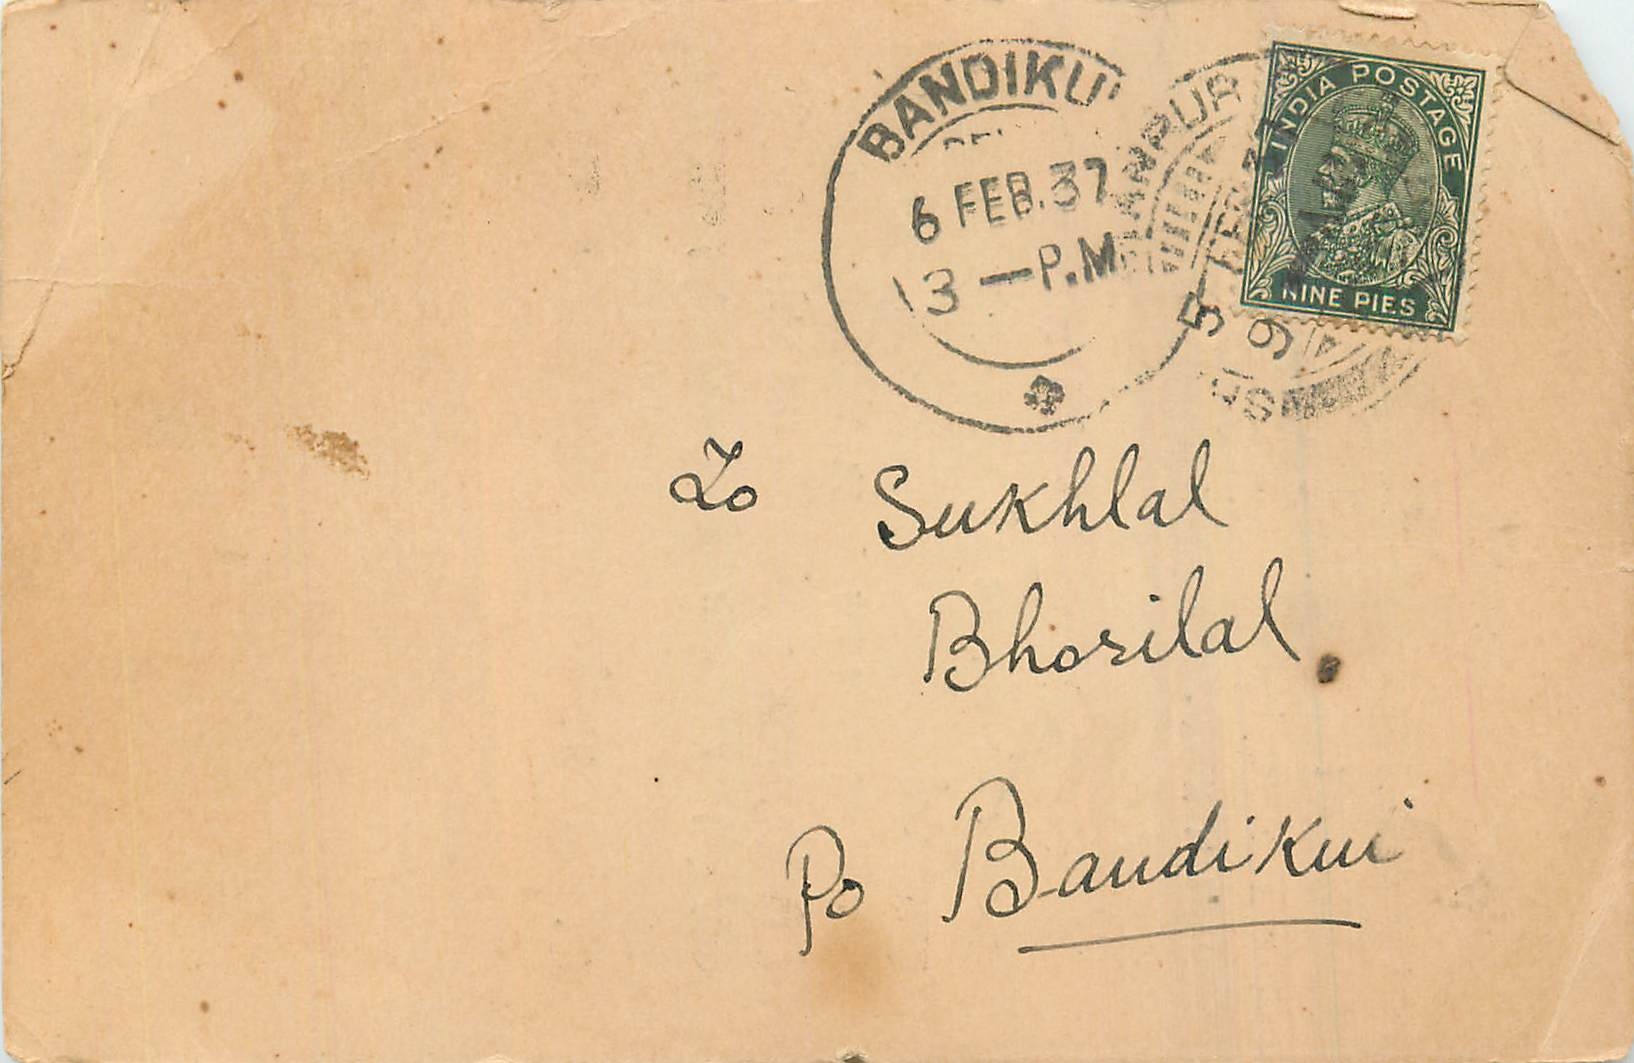 BANDIKU
DEL
6 FEB.37
3 —P.M
ANPUR
5 FEB 37
6
INDIA POSTAGE
NINE PIES
To Sukhlal
Bhorilal
Po Bandikui